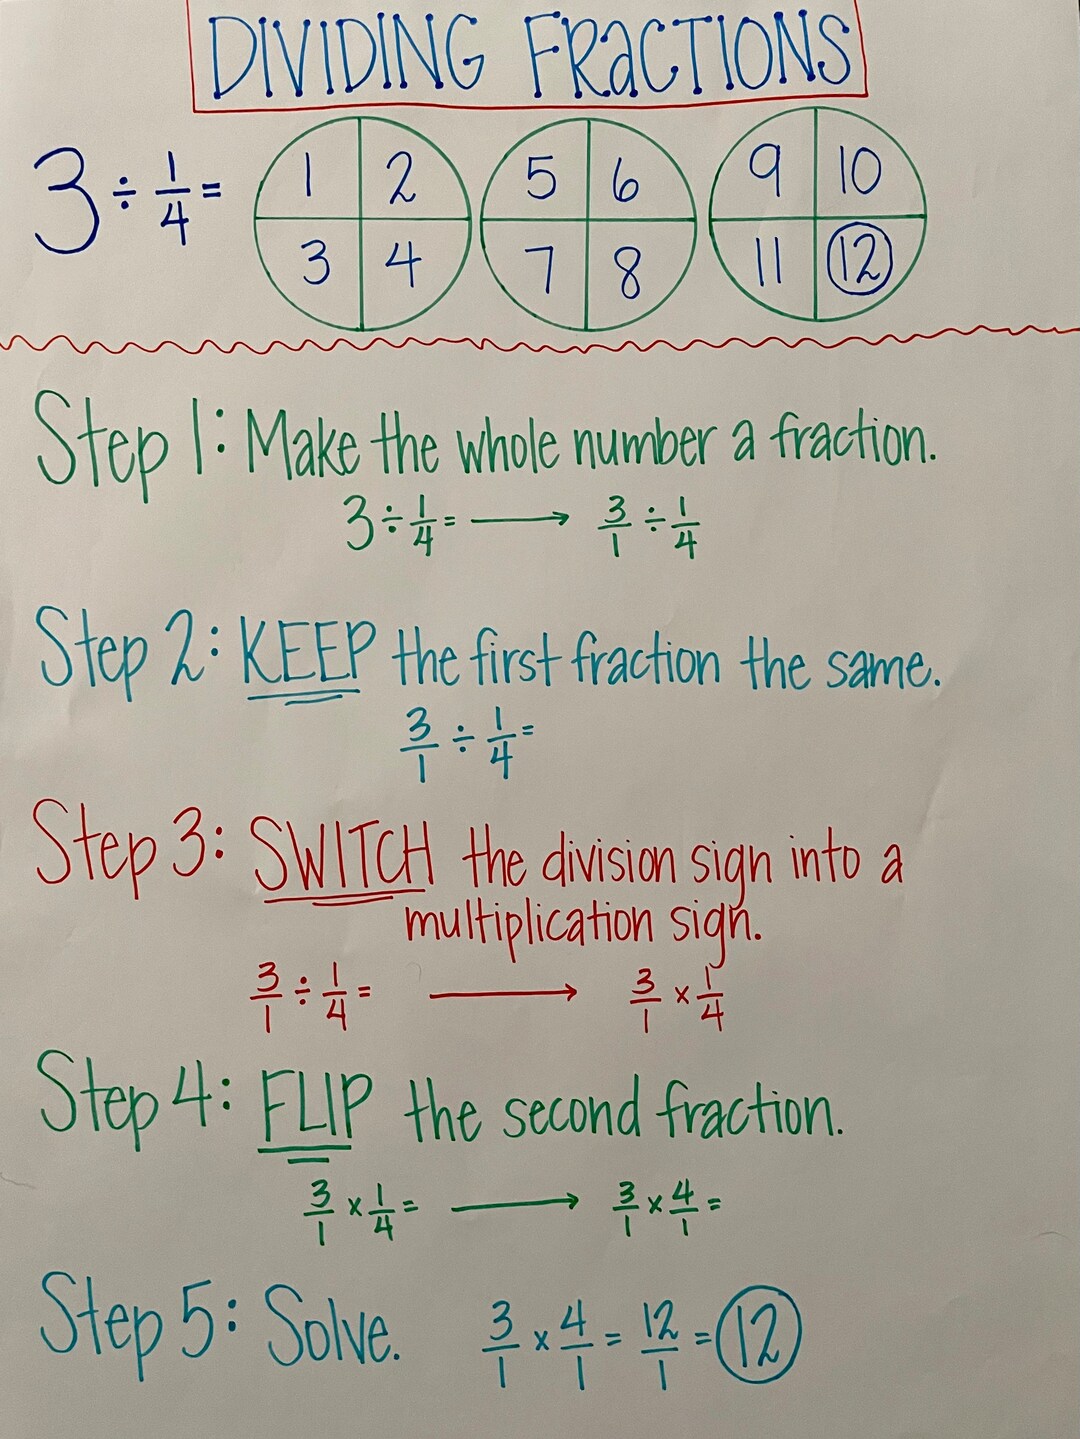 DIVIDING FRACTIONS
3 ÷ 1/4 =
1 2 5 6 9 10
3 4 7 8 11 12
Step 1: Make the whole number a fraction.
3 ÷ 1/4 = → 3/1 ÷ 1/4
Step 2: KEEP the first fraction the same.
3/1 ÷ 1/4 =
Step 3: SWITCH the division sign into a
multiplication sign.
3/1 ÷ 1/4 = → 3/1 × 1/4
Step 4: FLIP the second fraction.
3/1 × 1/4 = → 3/1 × 4/1 =
Step 5: Solve. 3/1 × 4/1 = 12/1 = 12